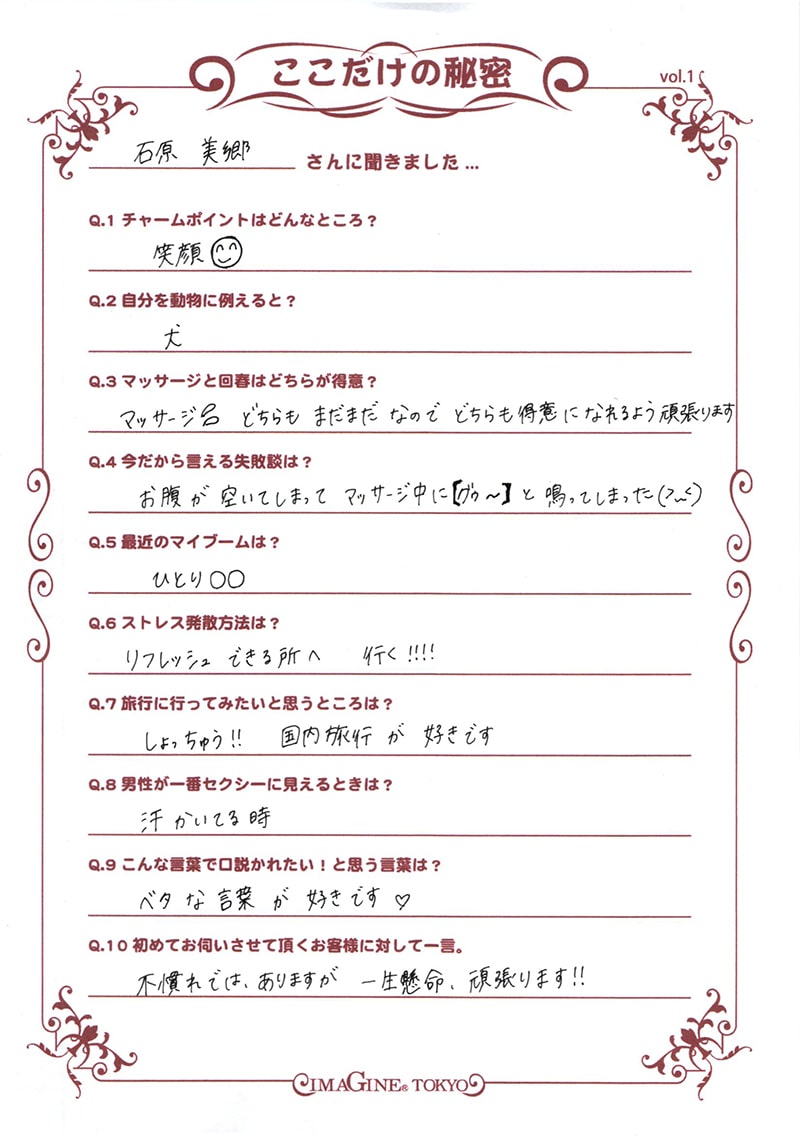 ここだけの秘密
vol.1
石原 美郷 さんに聞きました...
Q.1 チャームポイントはどんなところ?
笑顔
Q.2 自分を動物に例えると?
犬
Q.3 マッサージと回春はどちらが得意?
マッサージ名 どちらも まだまだ なので どちらも得意になれるよう頑張ります
Q.4 今だから言える失敗談は?
お腹が 空いてしまって マッサージ中に【グゥ〜】と 鳴ってしまった(>﹏<)
Q.5 最近のマイブームは?
ひとり○○
Q.6 ストレス発散方法は?
リフレッシュ できる所へ 行く!!!!
Q.7 旅行に行ってみたいと思うところは?
しょっちゅう!! 国内旅行 が 好きです
Q.8 男性が一番セクシーに見えるときは?
汗かいてる時
Q.9 こんな言葉で口説かれたい!と思う言葉は?
ベタな言葉が 好きです♡
Q.10 初めてお伺いさせて頂くお客様に対して一言。
不慣れでは、ありますが 一生懸命、頑張ります!!
IMAGINE® TOKYO